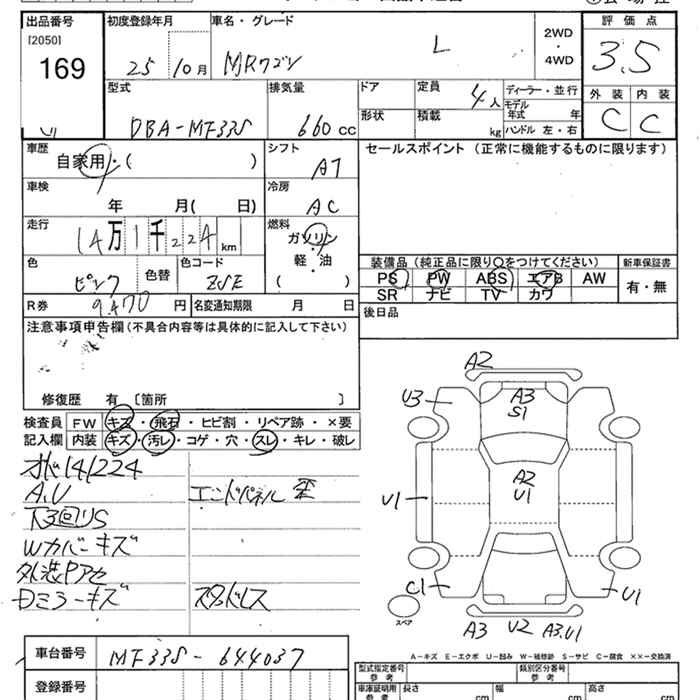 出品番号 初度登録年月 車名・グレード 評価点
[2050]
169 25 10月 MRワゴン L 2WD・4WD 3.5
型式 排気量 ドア 定員 4人 ディーラー・並行 外装 内装
DBA-MF33S 660cc 形状 積載 kg モデル年式 年 C C
ハンドル 左・右
車歴 シフト セールスポイント (正常に機能するものに限ります)
自家用・( ) AT
車検 冷房
年 月( 日) AC
走行 燃料
14万1千224km ガソリン・軽・油
色 色替 色コード ( )
ピンク ZSE
装備品 (純正品に限り○をつけてください) 新車保証書
PS PW ABS エアB AW 有・無
SR ナビ TV カワ
R券 9,470円 名変通知期限 月 日 後日品
注意事項申告欄 (不具合内容等は具体的に記入して下さい)
修復歴 有 [箇所 ]
検査員 FW キズ・飛石・ヒビ割・リペア跡・×要
記入欄 内装 キズ・汚レ・コゲ・穴・スレ・キレ・破レ
141224
A.U エンドパネル歪
下3回りS
Wカバーキズ
外装Pアセ
Dミラーキズ スタッドレス
A2
U3 A3
S1
A2
U1
U1
C1 U1
スペア
A3 U2 A3.U1
A-キズ E-エクボ U-凹み W-補修跡 S-サビ C-腐食 ××-交換済
車台番号 MF33S-644037
型式指定番号 類別区分番号
参考 参考
登録番号 車庫証明用 長さ 幅 高さ
参考 cm cm cm